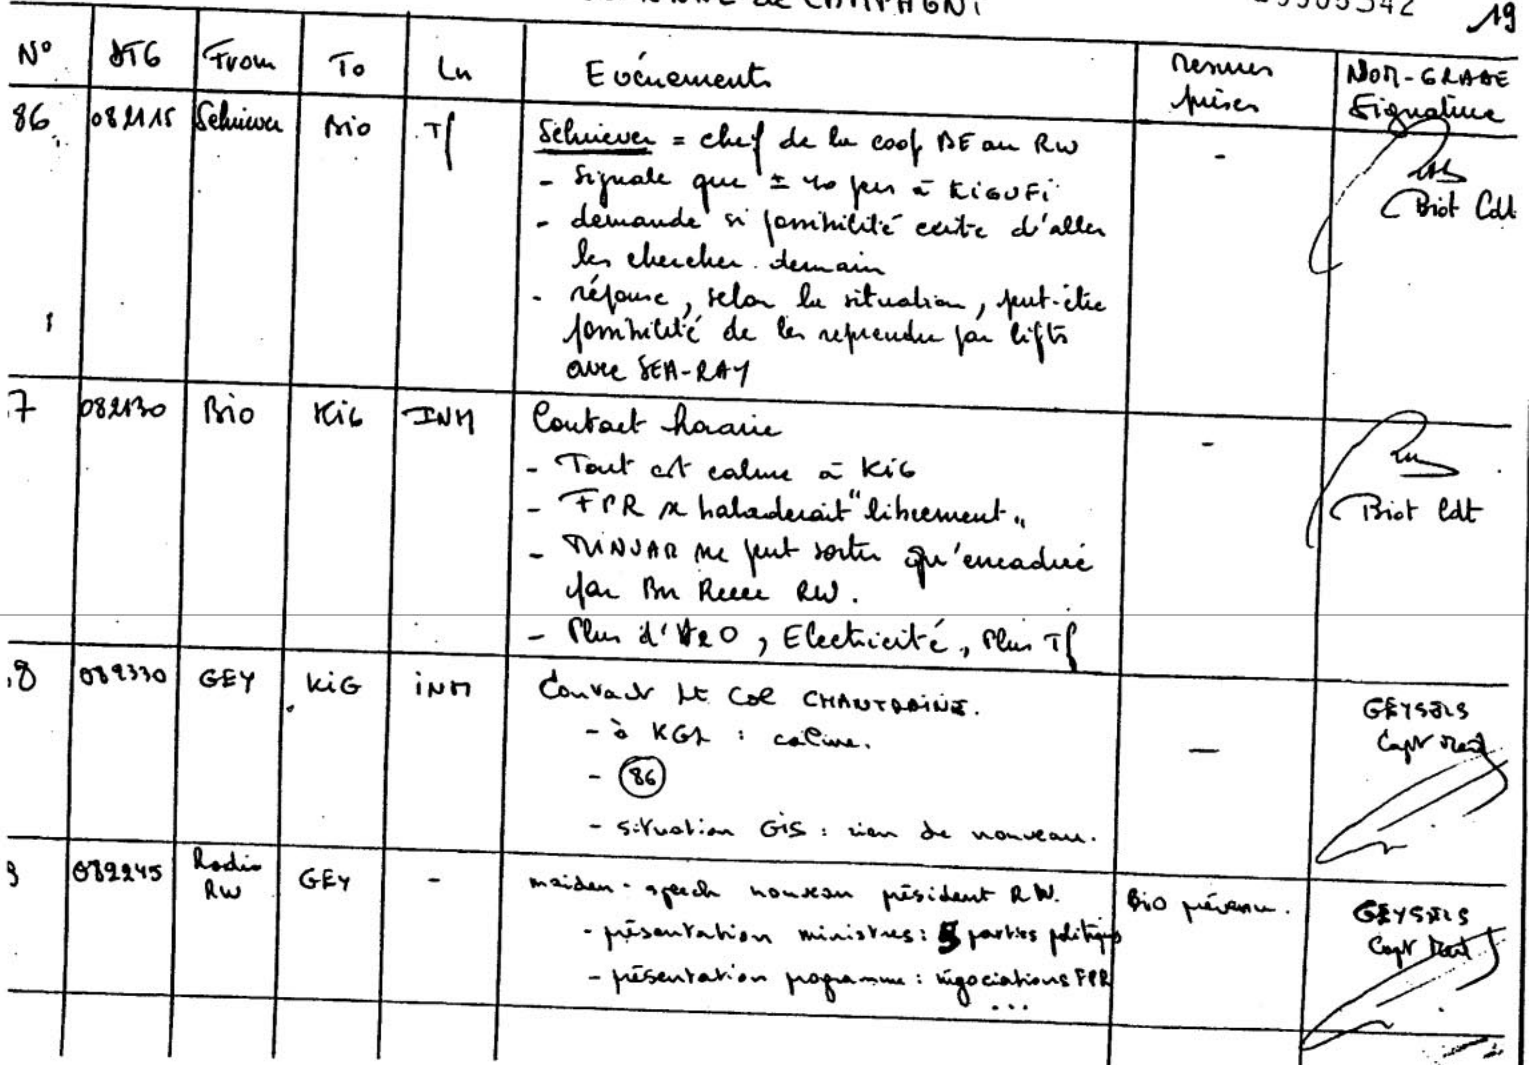 de CAMPAGNE
19
N° DTG From To Ln Evénements mesures prises NOM-GRADE Signature
86 082115 Schriever Bio Tf
Schriever = chef de la coop BE au RW
- Signale que ± 40 per à KIGUFI
- demande si possibilité existe d'aller
les chercher demain
- réponse, selon la situation, peut-être
possibilité de les reprendre par lifts
avec SEA-RAY
-
Biot Cdt
7 082130 Bio KiG INM
Contact horaire
- Tout est calme à KiG
- FPR se baladerait "librement"
- MINUAR ne peut sortir qu'encadré
par Bn Recce RW.
- Plus d'H2O, Electricité, Plus Tf
-
Biot Cdt
8 082330 GEY KiG iNM
Contact Lt Col CHANTRAINE.
- à KGL : calme.
- 86
- situation GIS : rien de nouveau.
-
GEYSELS
Capt
082245 Radio RW GEY -
maiden-speech nouveau président RW.
- présentation ministres : 5 partis politiques
- présentation programme : négociations FPR
...
BiO prévenu.
GEYSELS
Capt